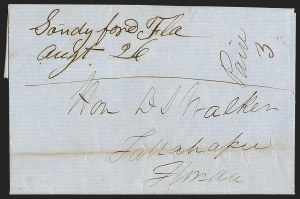 Sandyford Fla
Augt 26
Paid
3
Hon D S Walker
Tallahassee
Florida